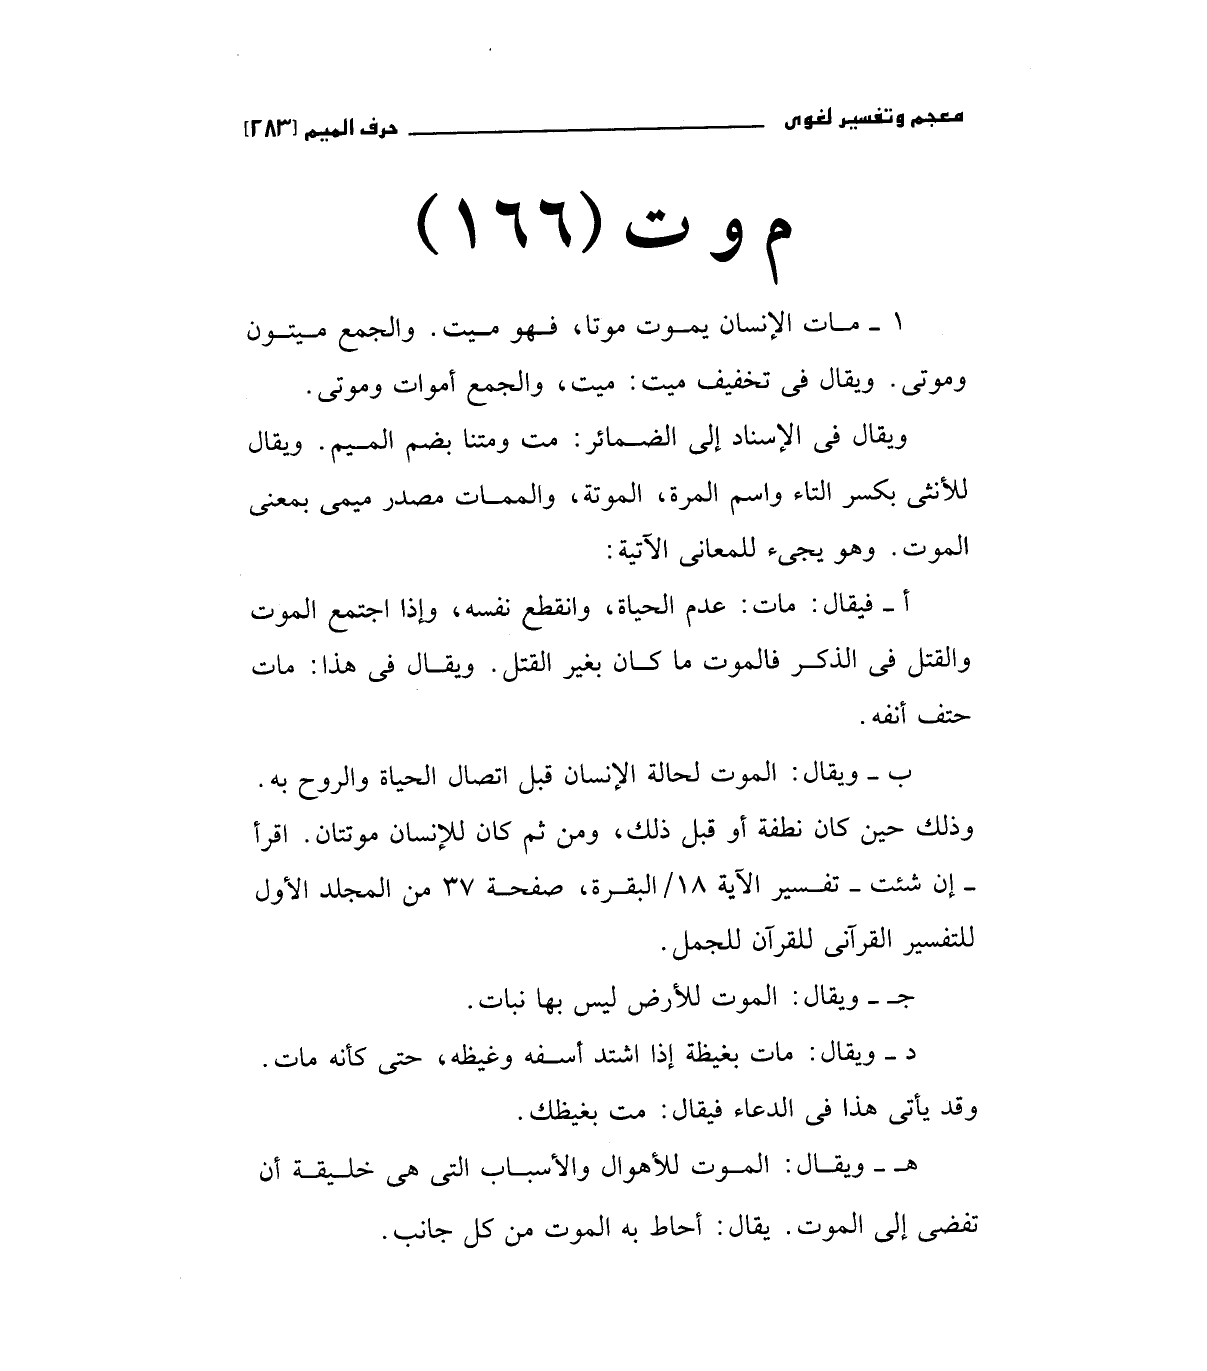 معجم وتفسير لغوى حرف الميم [٢٨٣]
م و ت (١٦٦)
١ ـ مات الإنسان يموت موتا، فهو ميت. والجمع ميتون
وموتى. ويقال فى تخفيف ميت: ميت، والجمع أموات وموتى.
ويقال فى الإسناد إلى الضمائر: مت ومتنا بضم الميم. ويقال
للأنثى بكسر التاء واسم المرة، الموتة، والممات مصدر ميمى بمعنى
الموت. وهو يجىء للمعانى الآتية:
أ ـ فيقال: مات: عدم الحياة، وانقطع نفسه، وإذا اجتمع الموت
والقتل فى الذكر فالموت ما كان بغير القتل. ويقال فى هذا: مات
حتف أنفه.
ب ـ ويقال: الموت لحالة الإنسان قبل اتصال الحياة والروح به.
وذلك حين كان نطفة أو قبل ذلك، ومن ثم كان للإنسان موتتان. اقرأ
ـ إن شئت ـ تفسير الآية ١٨/ البقرة، صفحة ٣٧ من المجلد الأول
للتفسير القرآنى للقرآن للجمل.
جـ ـ ويقال: الموت للأرض ليس بها نبات.
د ـ ويقال: مات بغيظة إذا اشتد أسفه وغيظه، حتى كأنه مات.
وقد يأتى هذا فى الدعاء فيقال: مت بغيظك.
هـ ـ ويقال: الموت للأهوال والأسباب التى هى خليقة أن
تفضى إلى الموت. يقال: أحاط به الموت من كل جانب.